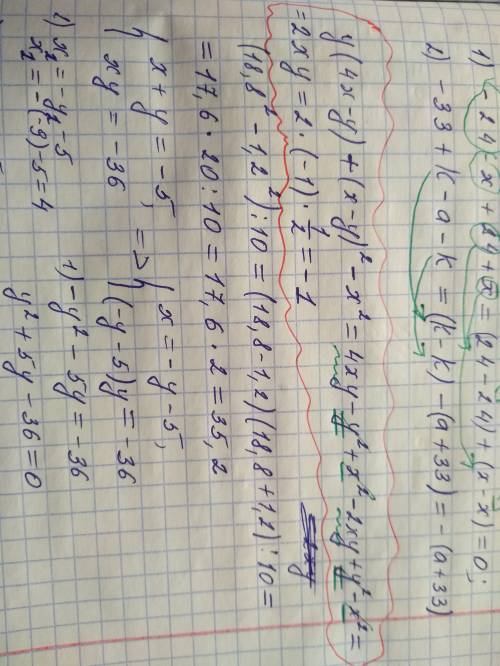 1) - 24 - x + 24 + x = (24 - 24) + (x - x) = 0;
2) - 33 + k - a - k = (k - k) - (a + 33) = - (a + 33)
y(4x - y) + (x - y)² - x² = 4xy - y² + x² - 2xy + y² - x² =
= 2xy = 2 · (-1) · 1/2 = -1
(18,8² - 1,2²) : 10 = (18,8 - 1,2)(18,8 + 1,2) : 10 =
= 17,6 · 20 : 10 = 17,6 · 2 = 35,2
{ x + y = -5, => { x = -y - 5,
{ xy = -36 { (-y - 5)y = -36
1) x₂ = -y₂ - 5 1) - y² - 5y = -36
x₂ = -(-9) - 5 = 4 y² + 5y - 36 = 0